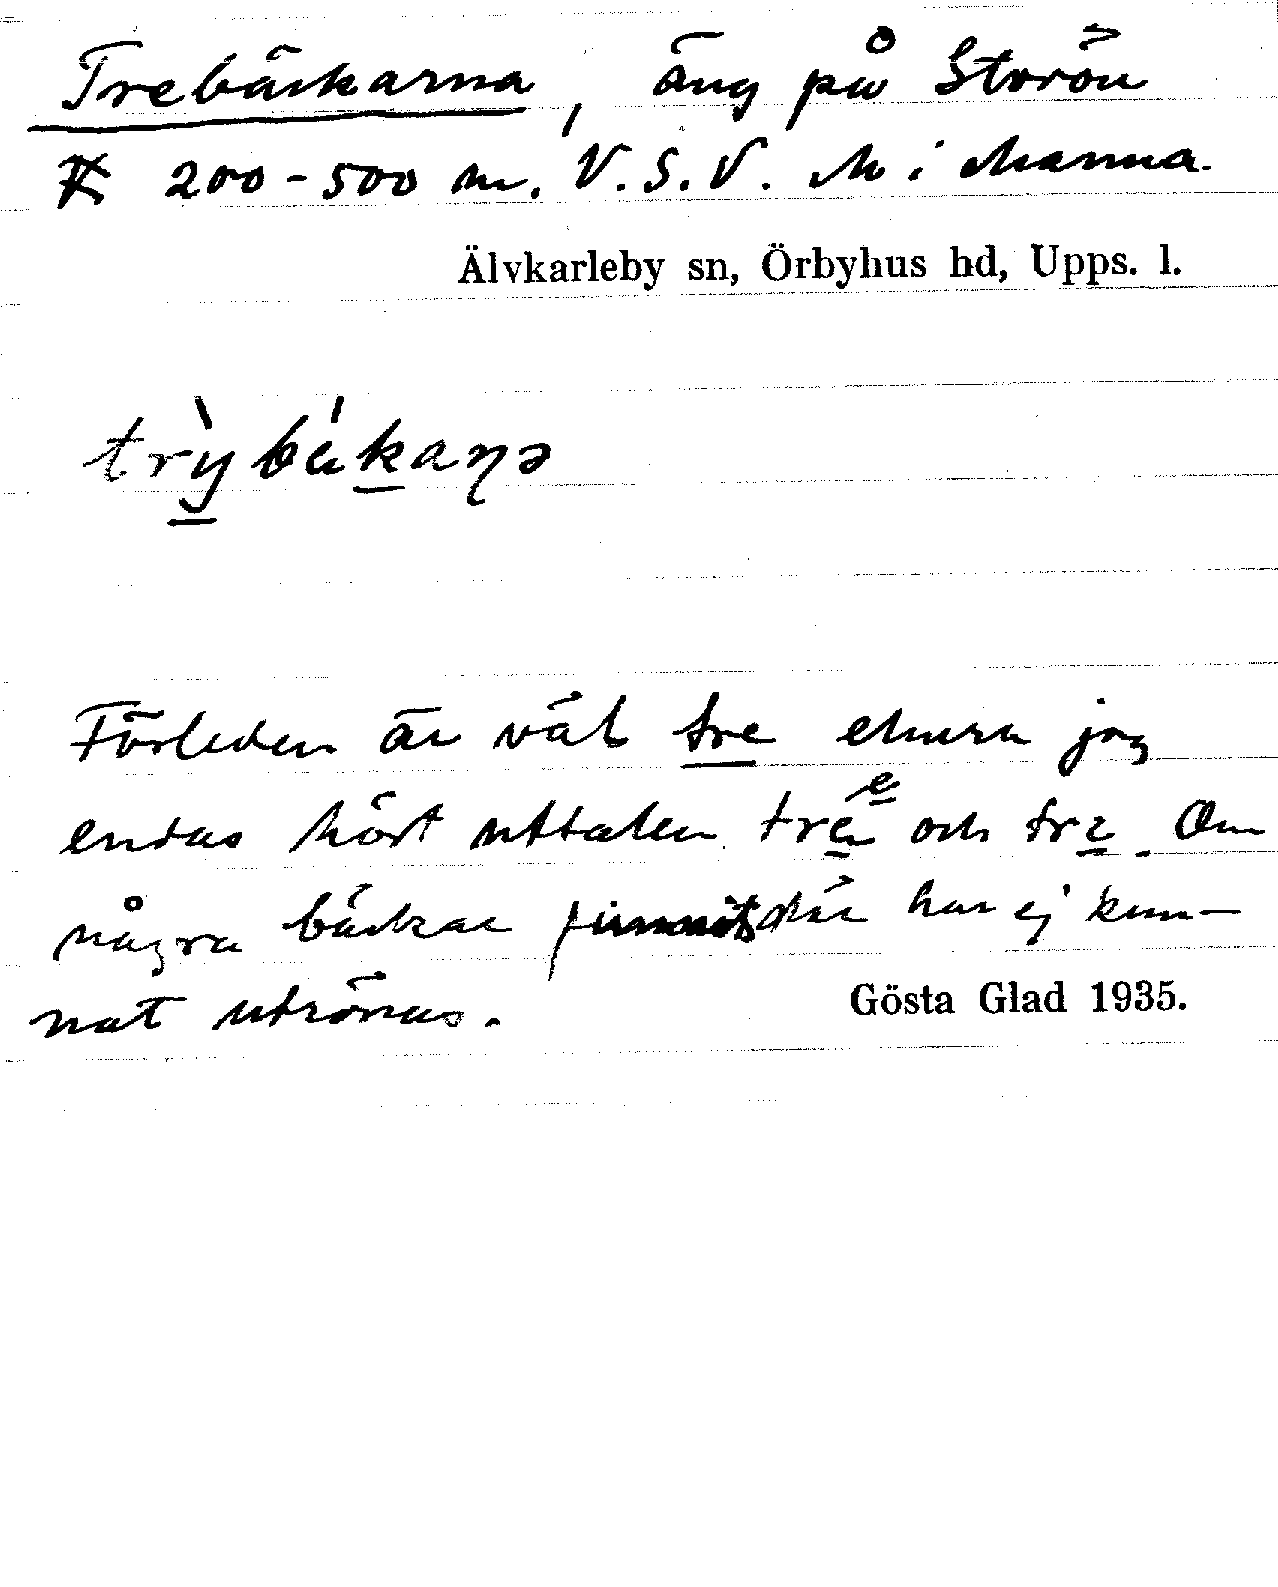 Trebäckarna, äng på Storön
200-500 m. V.S.V. M i Marma.
Älvkarleby sn, Örbyhus hd, Upps. l.
trỳbákaṇə
Förleden är väl tre ehuru jag
endas hört uttalen och Om
några bäckar funnits där har ej kun-
nat utrönas.
Gösta Glad 1935.